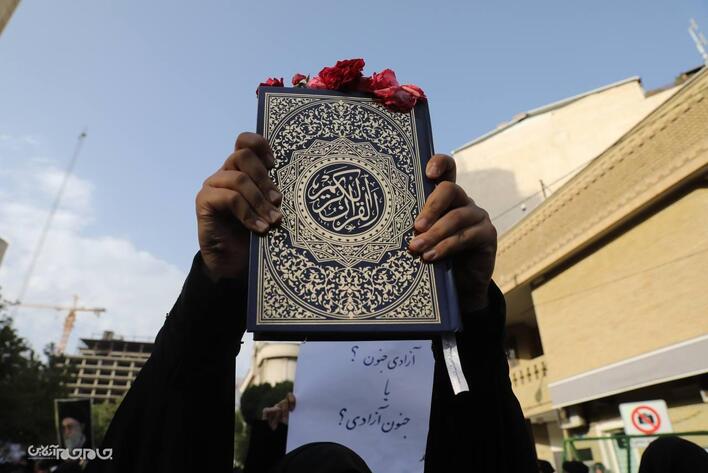 القرآن الكريم
آزادی جنون ؟
یا
جنون آزادی ؟
جام‌جم آنلاین